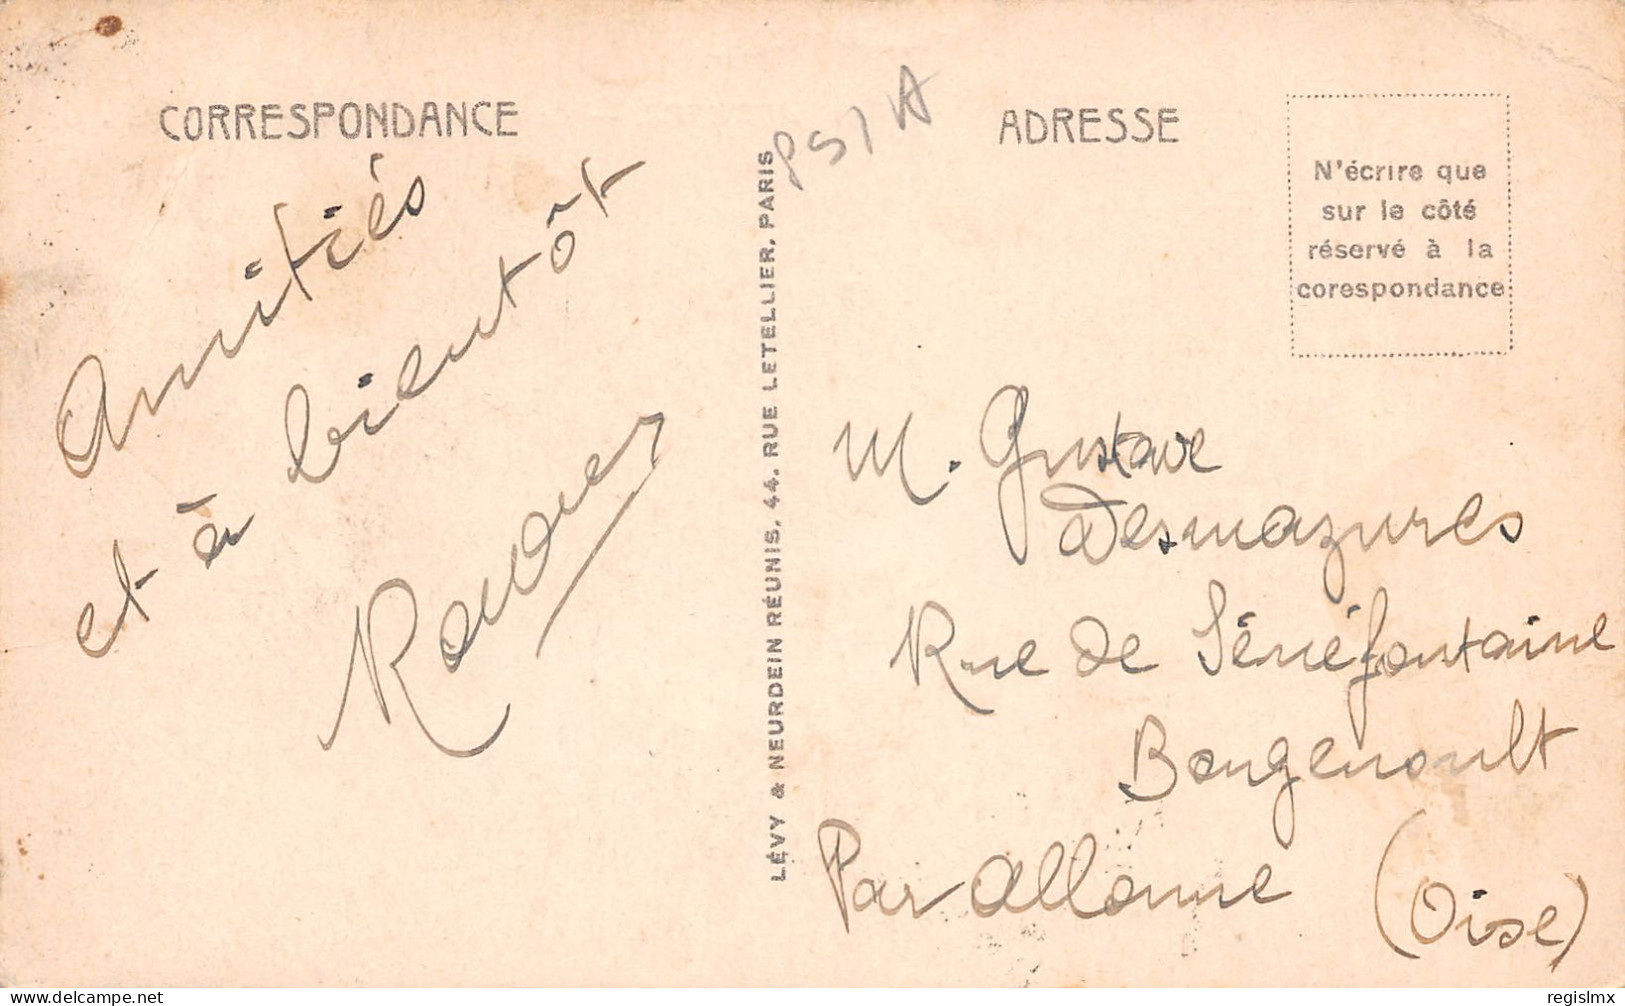 CORRESPONDANCE
Amitiés
et à bientôt
LÉVY & NEURDEIN RÉUNIS, 44, RUE LETELLIER, PARIS
ADRESSE
N'écrire que
sur le côté
réservé à la
corespondance
M. Gustave
Desmazures
Rue de Sénéfontaine
Bongenoult
Par Allonne (Oise)
delcampe.net
regislmx